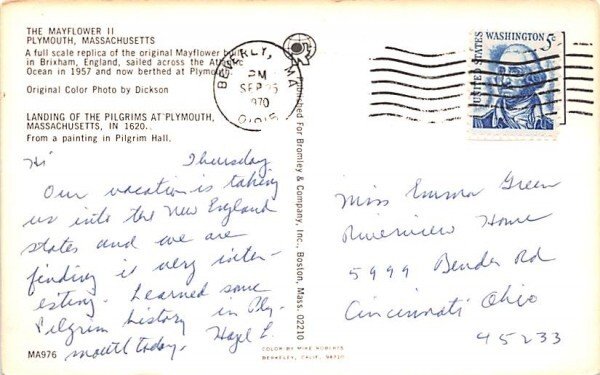 THE MAYFLOWER II
PLYMOUTH, MASSACHUSETTS
A full scale replica of the original Mayflower
in Brixham, England, sailed across the
Ocean in 1957 and now berthed at
Original Color Photo by Dickson
LANDING OF THE PILGRIMS AT PLYMOUTH,
MASSACHUSETTS, IN 1620.
From a painting in Pilgrim Hall.
Hi Thursday
Our vacation is taking
us into the New England
states and we are
finding it very inter-
esting. Learned some
Pilgrim history in Ply-
mouth today. Hazel L.
MA976
BEVERLY, MA
PM
SEP 25
1970
01915
Published For Bromley & Company, Inc., Boston, Mass. 02210
COLOR BY MIKE ROBERTS
BERKELEY, CALIF. 94710
UNITED STATES
WASHINGTON 5c
Miss Emma Green
Riverview Home
5999 Bender Rd
Cincinnati Ohio
45233